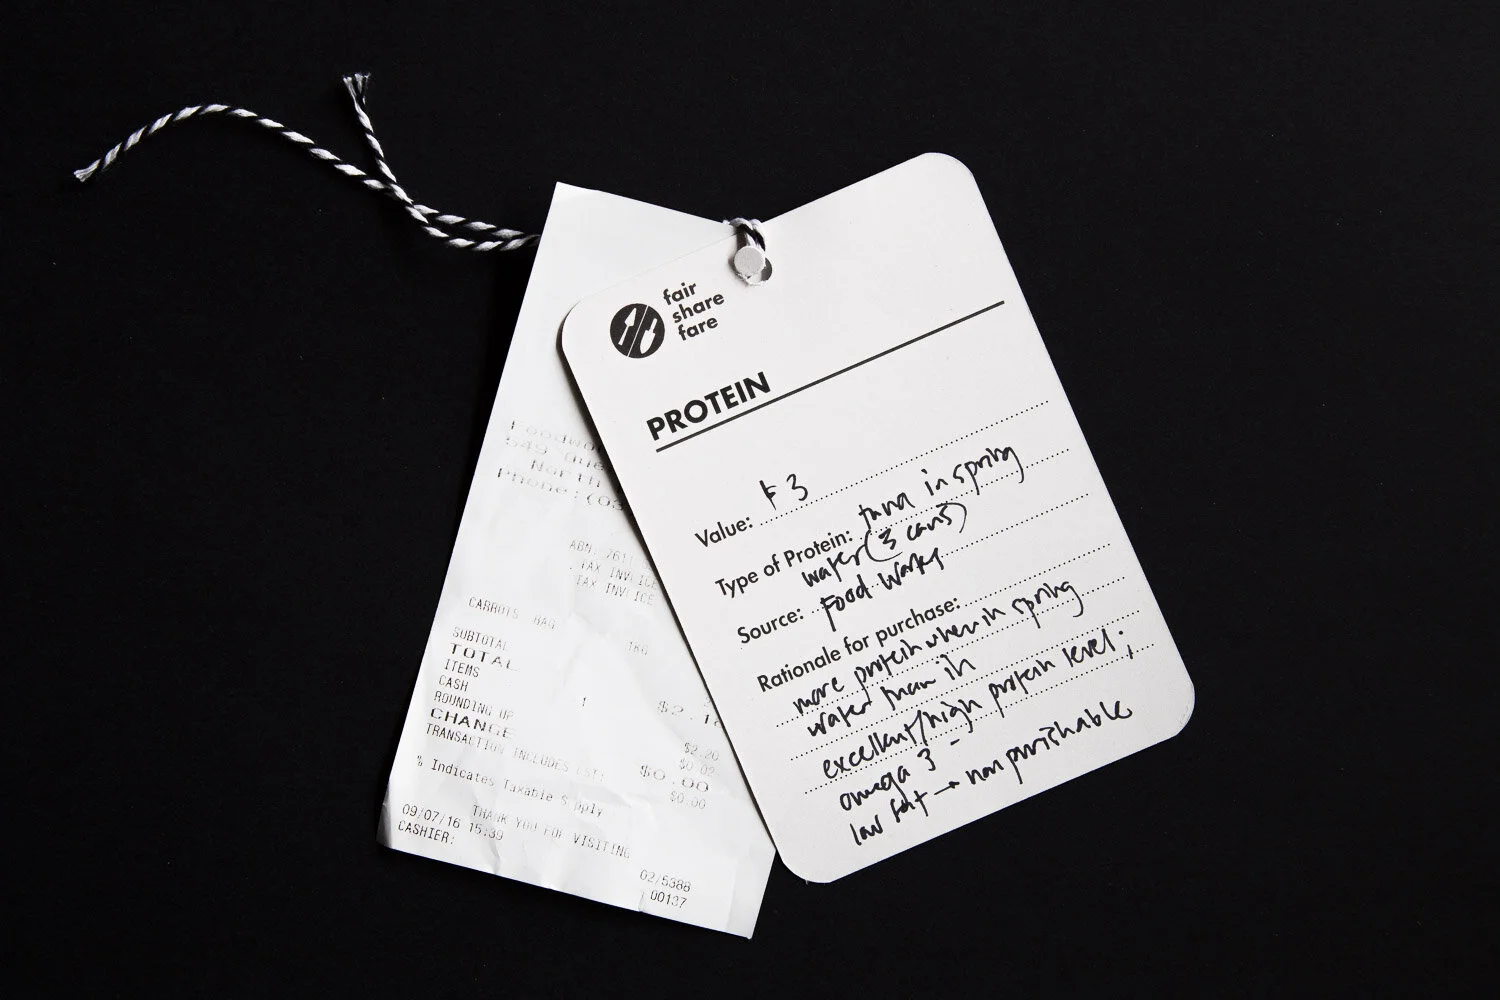 fair
share
fare
PROTEIN
Value: $3
Type of Protein: tuna in spring
water (3 cans)
Source: Food Works
Rationale for purchase:
more protein when in spring
water than in
excellent/high protein level;
omega 3 -
low fat → non perishable
549
North
Phone: (03
ABN.
TAX INVOICE
TAX INVOICE
CARROTS BAG 1KG
SUBTOTAL
TOTAL
ITEMS 1
CASH $2.20
ROUNDING UP $0.02
CHANGE $0.00
TRANSACTION INCLUDES GST: $0.00
% Indicates Taxable Supply
THANK YOU FOR VISITING
09/07/16 15:39 02/5388
CASHIER: 00137